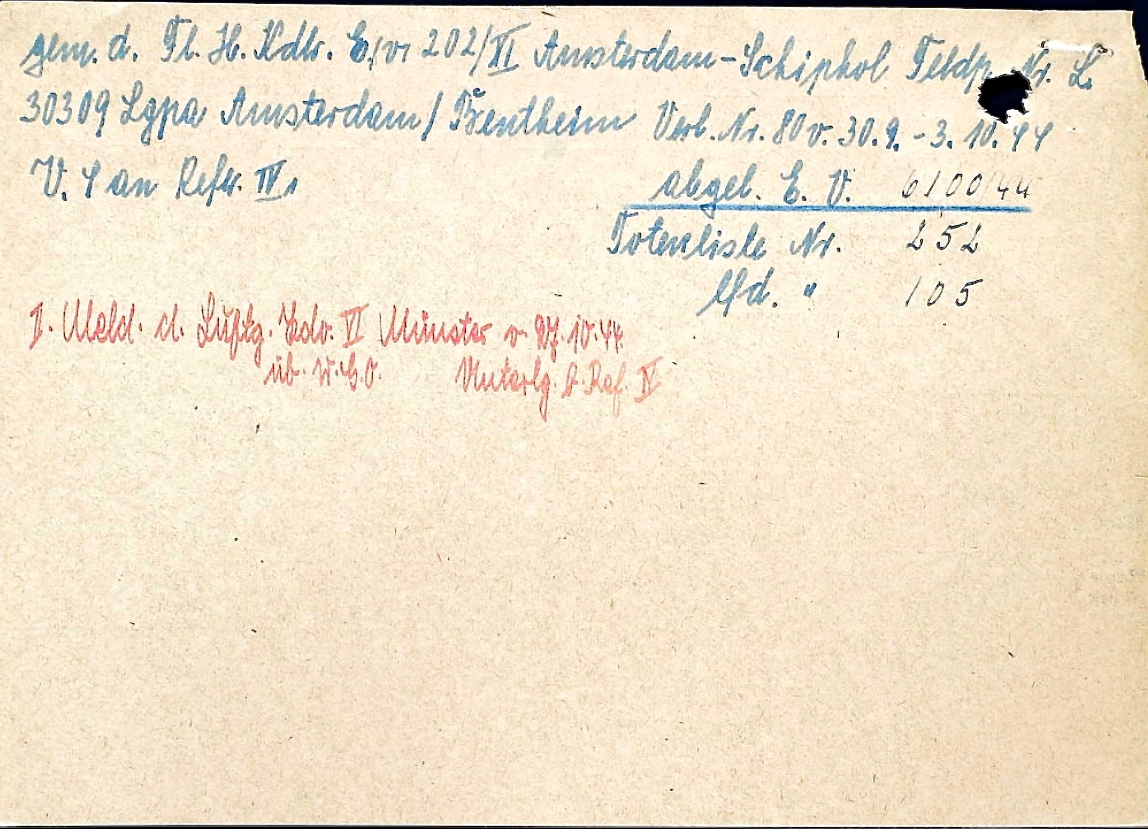 gem. d. Fl. H. Kdtr. E(v) 202/VI Amsterdam-Schiphol Feldp. Nr. L.
30309 Lgpa Amsterdam / Bentheim Verl. Nr. 80 v. 30.9. - 3.10.44
V. 4 an Refer. IV.
abgeb. E. V. 6100/44
Totenliste Nr. 252
lfd. " 105
I. Meld. d. Luftg. Kdo. VI Münster v. 27.10.44
üb. W.G.O. Unterlg. b. Ref. IV